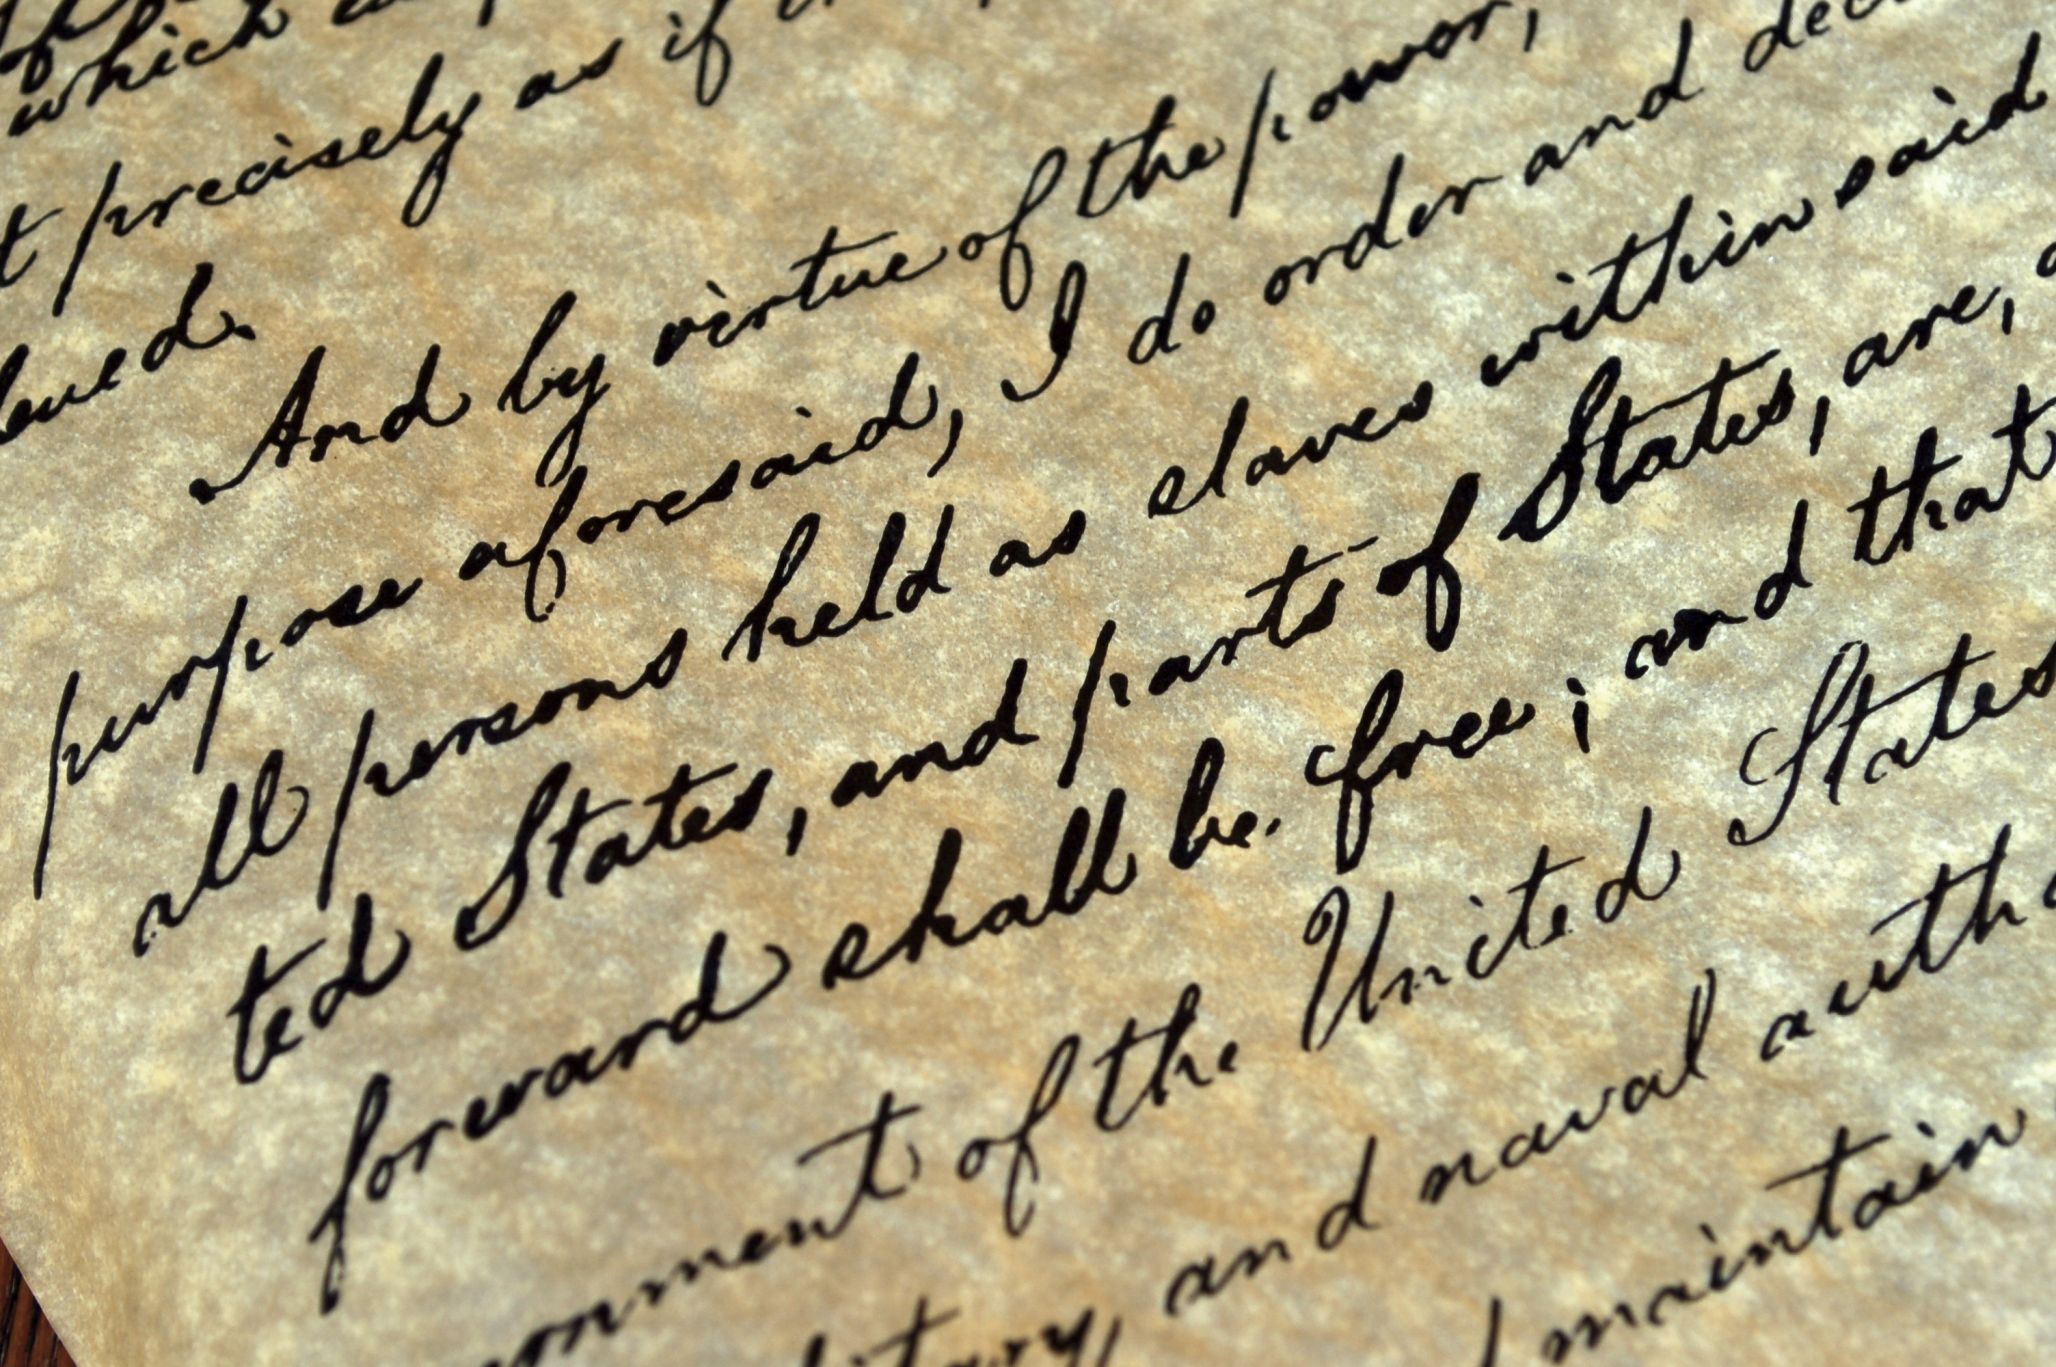 which
t precisely as if
And by virtue of the power,
purpose aforesaid, I do order and dec
all persons held as slaves within said
ted States, and parts of States, are,
forward shall be free; and that
ernment of the United States
itary, and naval autho
maintain